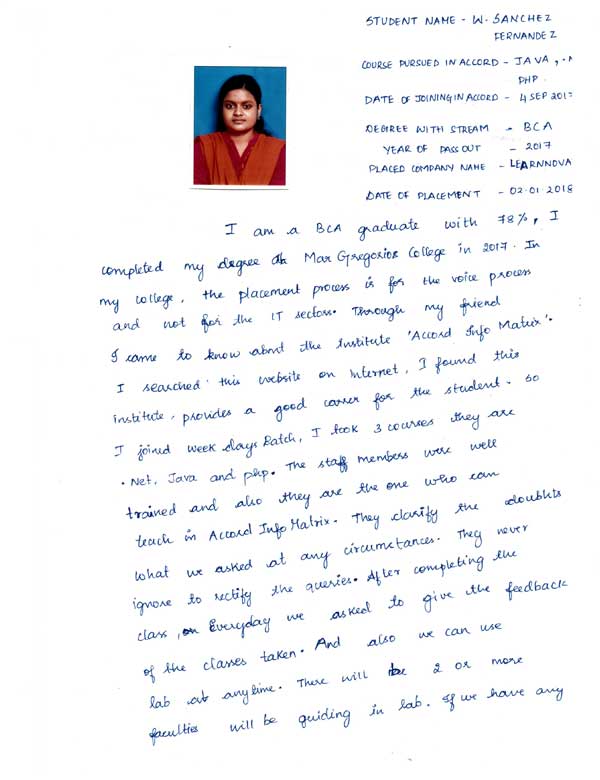 STUDENT NAME - W. SANCHEZ
FERNANDEZ
COURSE PURSUED IN ACCORD - JAVA, .N
PHP
DATE OF JOINING IN ACCORD - 4 SEP 201
DEGREE WITH STREAM - BCA
YEAR OF PASS OUT - 2017
PLACED COMPANY NAME - LEARNNOVA
DATE OF PLACEMENT - 02.01.2018
I am a BCA graduate with 78%, I
completed my degree at Mar Gregorios College in 2017. In
my college, the placement process is for the voice process
and not for the IT sectors. Through my friend
I came to know about the Institute 'Accord Info Matrix'.
I searched this website on Internet, I found this
institute, provides a good carrer for the student. So
I joined week days Batch, I took 3 courses they are
.Net, Java and php. The staff members were well
trained and also they are the one who can
teach in Accord Info Matrix. They clarify the doubhts
what we asked at any circumctances. They never
ignore to rectify the queries. After completing the
class, on Everyday we asked to give the feedback
of the classes taken. And also we can use
lab at anytime. There will be 2 or more
faculties will be guiding in lab. If we have any